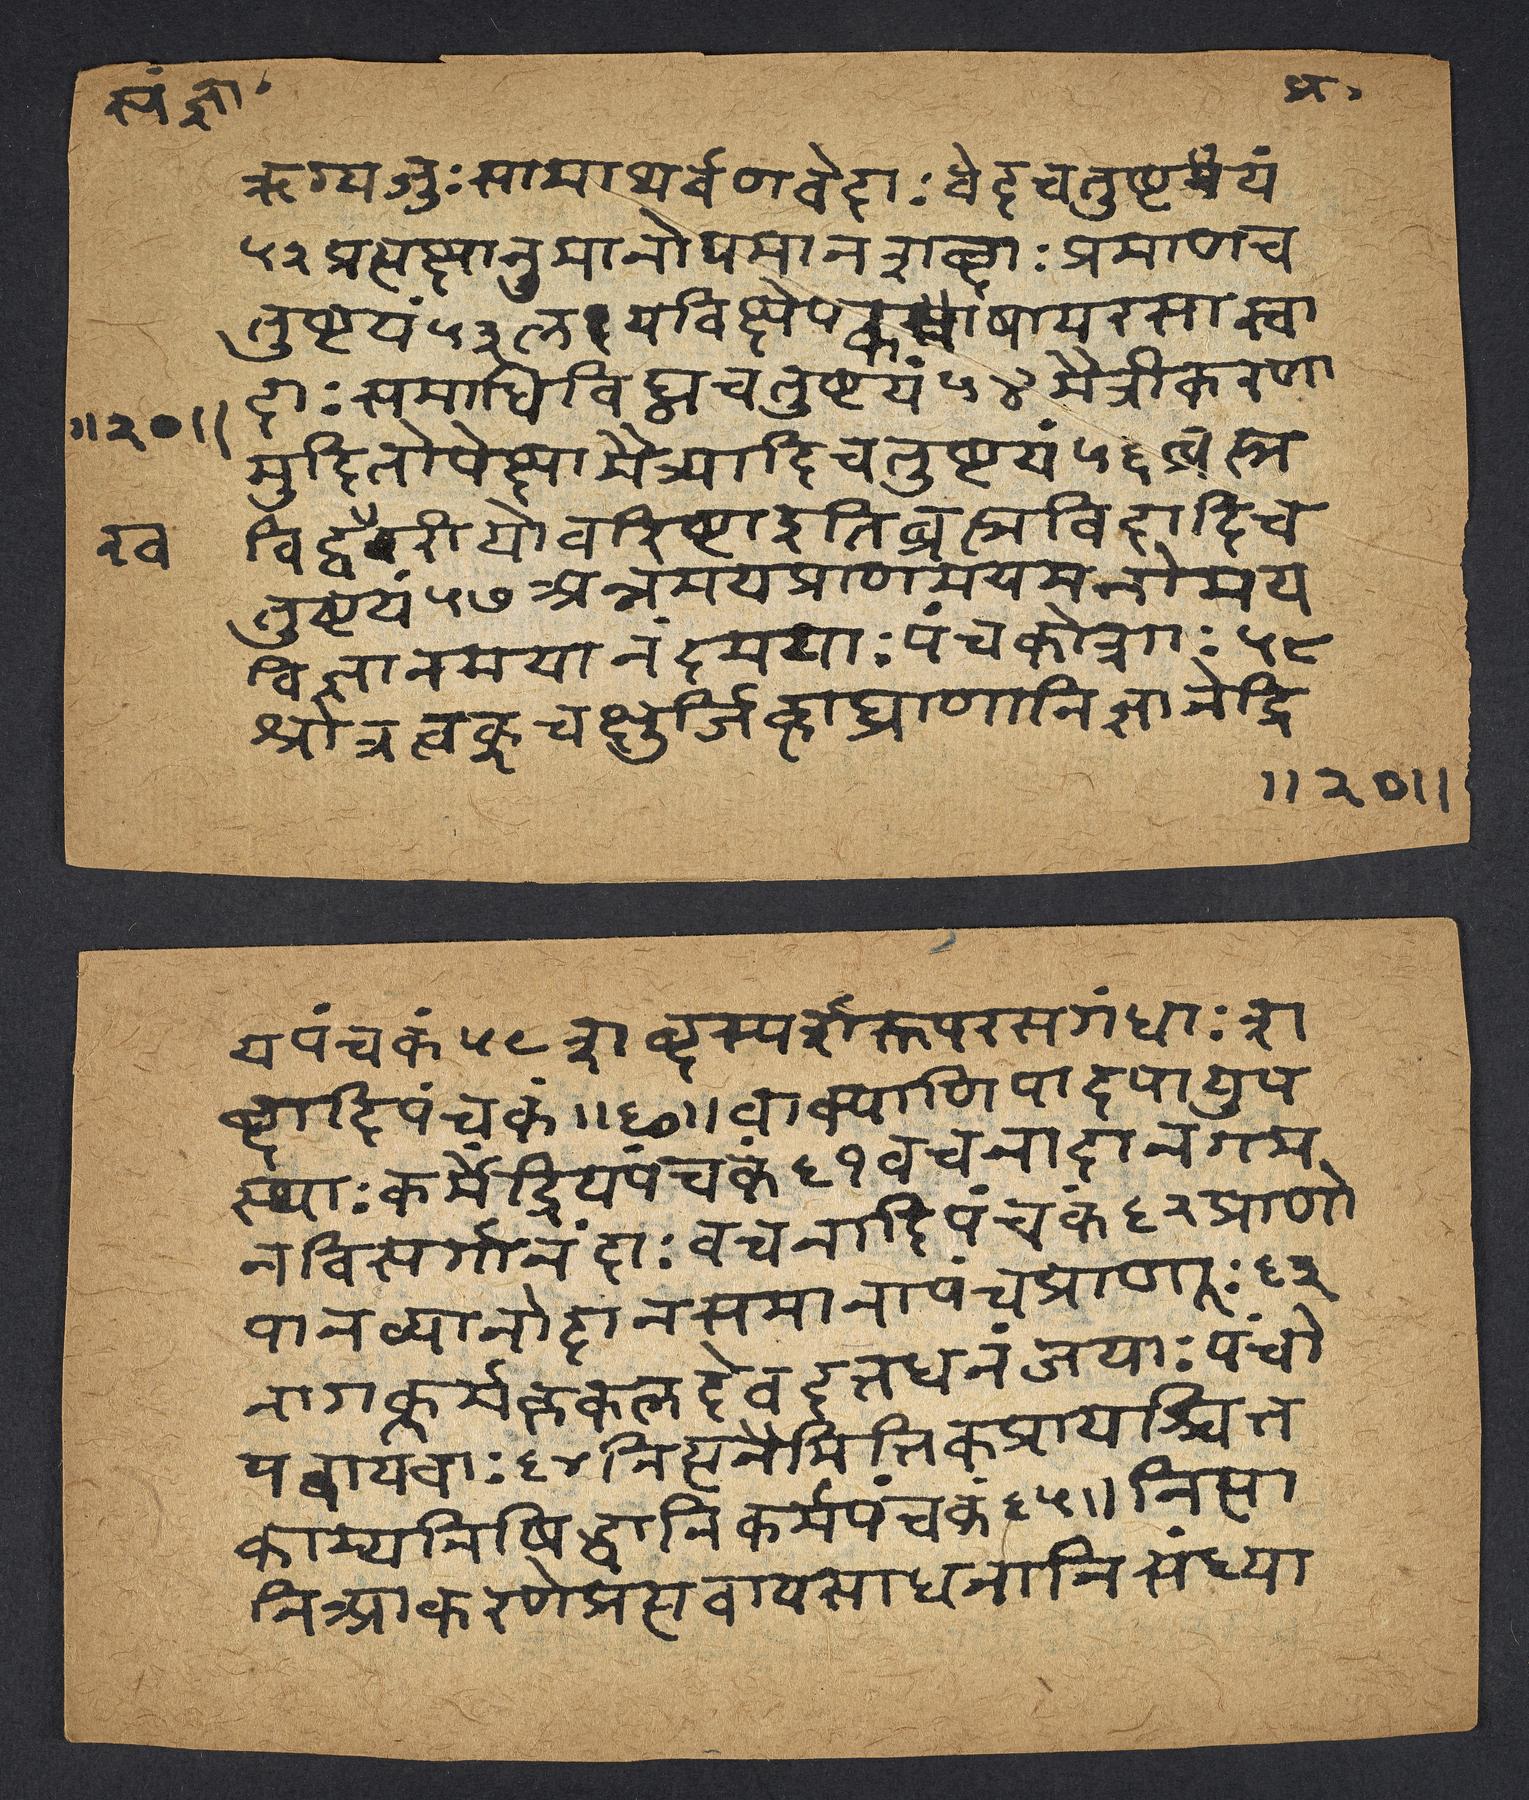 संज्ञा
प्र॰
ऋग्यजुःसामाथर्वणवेदाः वेदचतुष्टयं
५२ प्रत्यक्षानुमानोपमानशब्दाः प्रमाणच
तुष्टयं ५३ लयविक्षेपकषायरसास्वा
दाः समाधिविघ्नचतुष्टयं ५४ मैत्रीकरणा
॥२०॥
मुदितोपेक्षामैत्र्यादिचतुष्टयं ५६ ब्रह्म
ख
विद्वरीयोवरिष्टा इति ब्रह्मविदादिच
तुष्टयं ५७ अन्नमयप्राणमयमनोमय
विज्ञानमयानंदमयाः पंचकोशाः ५८
श्रोत्रत्वक्चक्षुर्जिह्वाघ्राणानि ज्ञानेंद्रि
॥२०॥
यपंचकं ५९ शब्दस्पर्शरूपरसगंधाः श
ब्दादिपंचकं ॥६०॥ वाक्पाणिपादपायुप
स्थाः कर्मेंद्रियपंचकं ६१ वचनादानगम
नविसर्गानंदाः वचनादिपंचकं ६२ प्राणो
पानव्यानोदानसमाना पंचप्राणाः ६३
नागकूर्मकृकलदेवदत्तधनंजयाः पंचो
पवायवाः ६४ नित्यनैमित्तिकप्रायश्चित्त
काम्यनिषिद्धानि कर्मपंचकं ६५॥ नित्या
निअकरणे प्रत्यवायसाधनानि संध्या